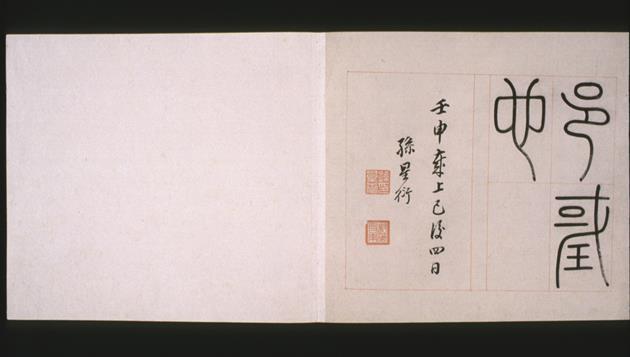 邑
也
壬申歲上巳後四日
孫星衍